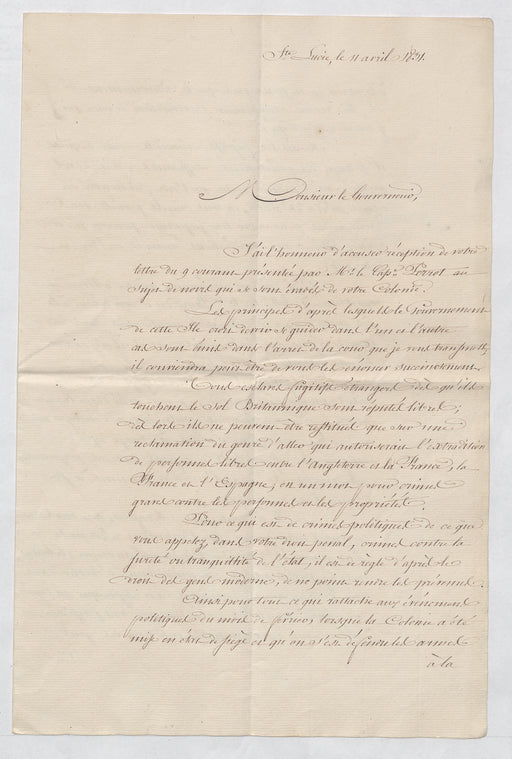 Ste Lucie, le 11 avril 1831.
Monsieur le Gouverneur,
J'ai l'honneur d'accuser réception de votre
lettre du 9 courant présentée par Mr. le Capne. Perrot au
sujet de noirs qui se sont évadés de votre Colonie.
Les principes d'après lesquels le Gouvernement
de cette Ile croit devoir se guider dans l'un et l'autre
cas sont émis dans l'arrêt de la cour que je vous transmets,
il conviendra peut être de vous les énoncer succinctement.
Tous esclaves fugitifs étrangers dès qu'ils
touchent le sol Britannique sont réputés libres;
dès lors ils ne peuvent être restitués que sur une
réclamation du genre d'actes qui autoriserait l'extradition
de personnes libres entre l'Angleterre et la France, la
France et l'Espagne, en un mot pour crimes
graves contre les personnes et les propriétés.
Pour ce qui est de crimes politiques de ce que
vous appelez, dans votre droit penal, crimes contre la
sureté ou tranquillité de l'état, il est de règle d'après le
droit des gens moderne, de ne point rendre les prévenus.
Ainsi pour tout ce qui rattache aux événemens
politiques du mois de février, lorsque la Colonie a été
mise en état de siège et qu'on s'est défendu les armes
à la